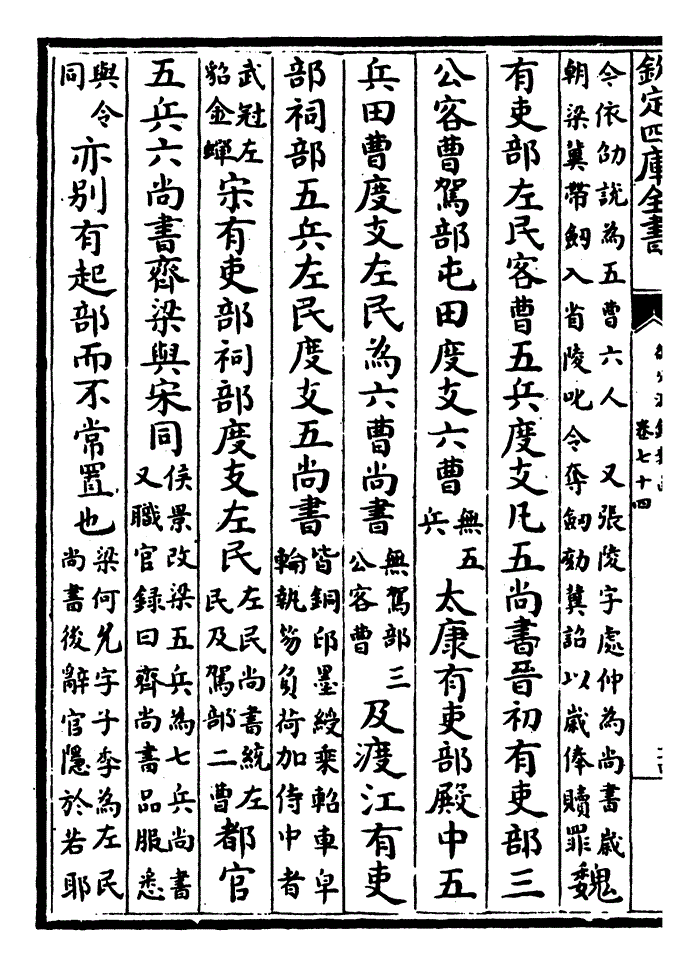 欽定四庫全書
卷七十四
今依劭說為五曹六人　又張陵字處仲為尚書歲
朝梁冀帶劔入省陵叱令奪劔劾冀詔以歲俸贖罪魏
有吏部左民客曹五兵度支凡五尚書晉初有吏部三
公客曹駕部屯田度支六曹無五兵太康有吏部殿中五
兵田曹度支左民為六曹尚書無駕部三公客曹及渡江有吏
部祠部五兵左民度支五尚書皆銅印墨綬乘軺車皁輪執笏負荷加侍中者
武冠左貂金蟬宋有吏部祠部度支左民左民尚書統左民及駕部二曹都官
五兵六尚書齊梁與宋同侯景改梁五兵為七兵尚書又職官録曰齊尚書品服悉
與令同亦别有起部而不常置也梁何允字子季為左民尚書後辭官隱於若耶